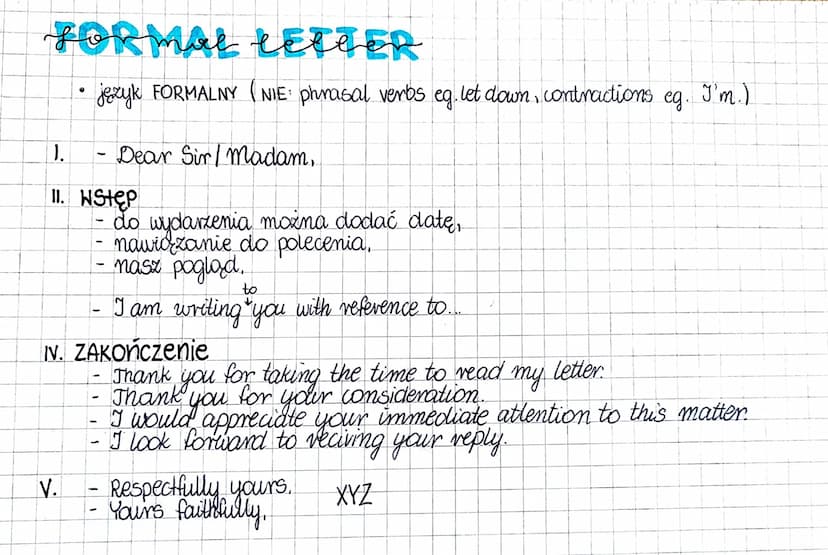 FORMAL LETTER
formal letter
• język FORMALNY (NIE: phrasal verbs eg. let down, contractions eg. I'm.)
I. - Dear Sir/Madam,
II. WSTĘP
- do wydarzenia można dodać datę,
- nawiązanie do polecenia,
- nasz pogląd.
- I am writing to you with reference to...
IV. ZAKOŃCZENIE
- Thank you for taking the time to read my letter.
- Thank you for your consideration.
- I would appreciate your immediate attention to this matter.
- I look forward to reciving your reply.
V. - Respectfully yours, XYZ
- Yours faithfully,